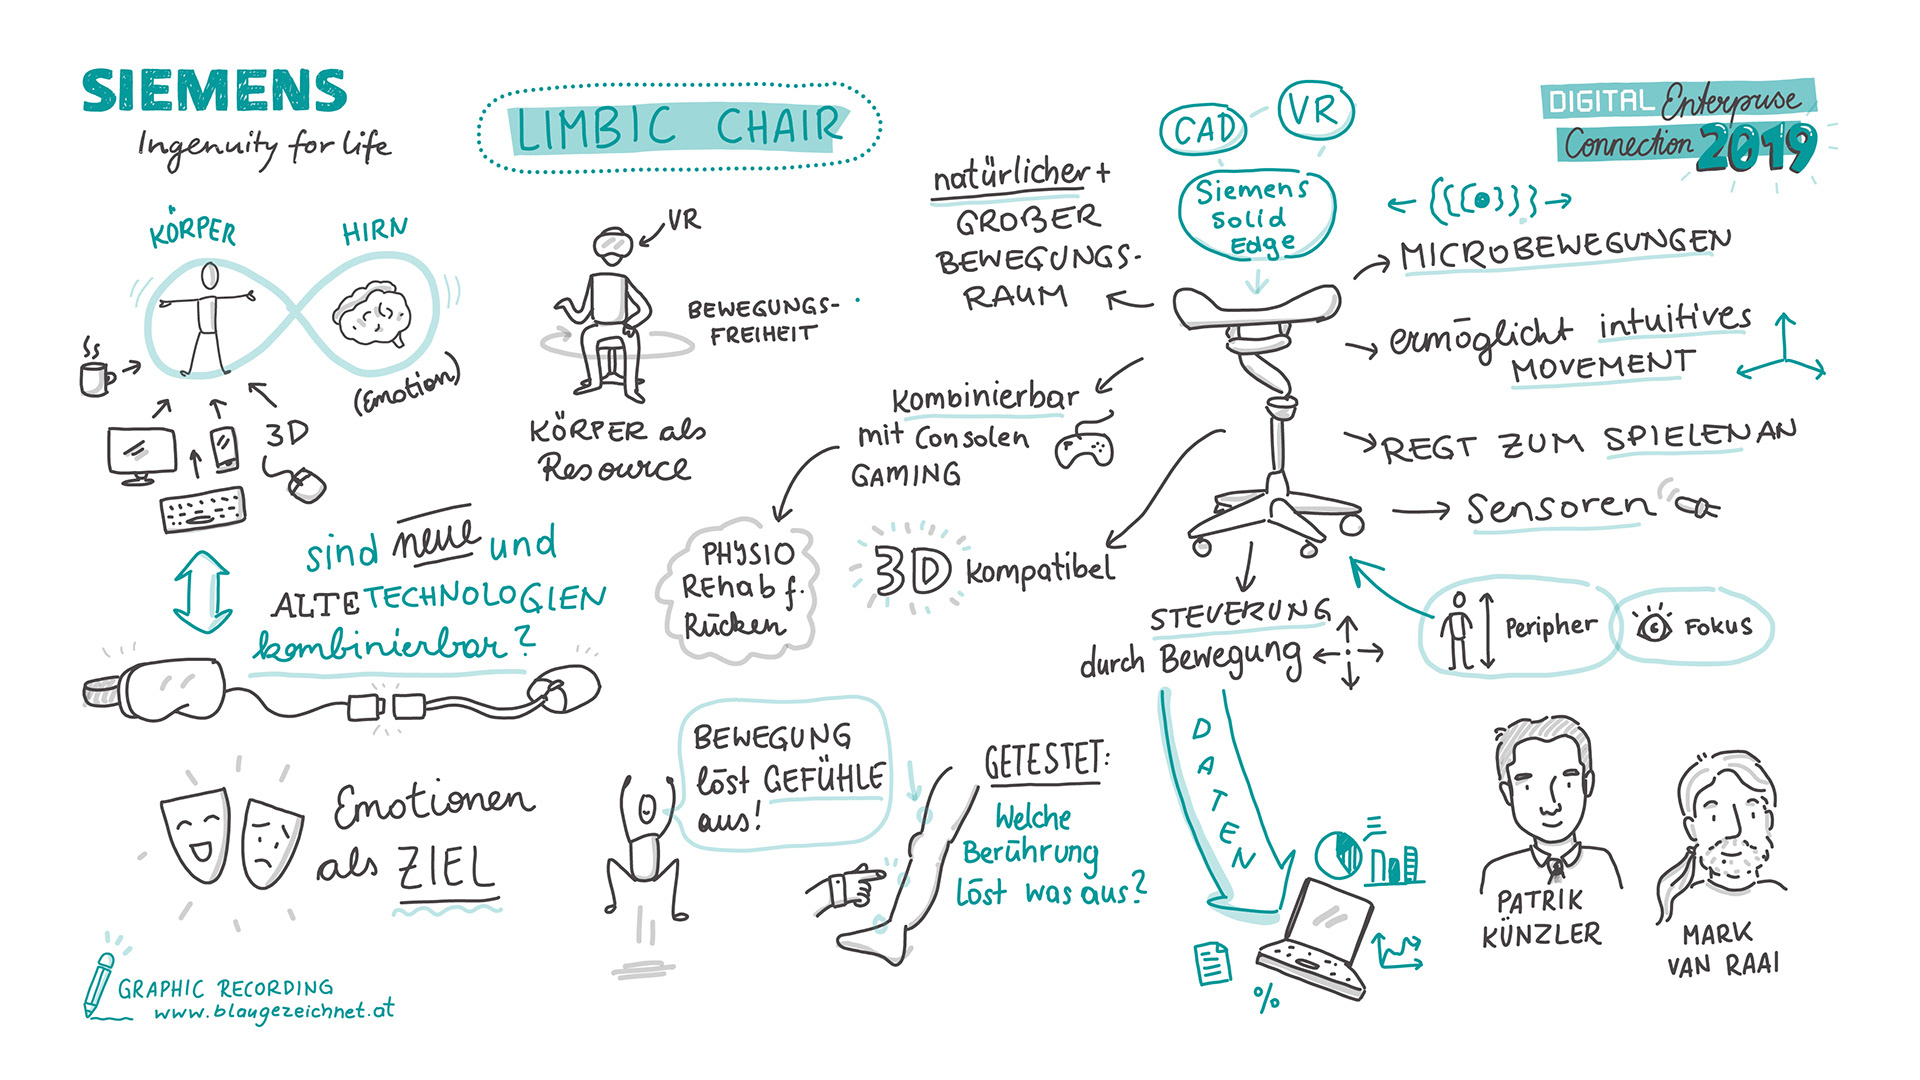 SIEMENS
Ingenuity for life
LIMBIC CHAIR
DIGITAL Enterprise
Connection 2019
KÖRPER
HIRN
(Emotion)
3D
sind neue und
ALTE TECHNOLOGIEN
kombinierbar?
VR
BEWEGUNGS-
FREIHEIT
KÖRPER als
Resource
natürlicher +
GROßER
BEWEGUNGS-
RAUM
CAD
VR
Siemens
Solid
Edge
MICROBEWEGUNGEN
ermöglicht intuitives
MOVEMENT
REGT ZUM SPIELEN AN
Sensoren
kombinierbar
mit Consolen
GAMING
PHYSIO
REhab f.
Rücken
3D kompatibel
STEUERUNG
durch Bewegung
Peripher
FOKUS
DATEN
%
Emotionen
als ZIEL
BEWEGUNG
löst GEFÜHLE
aus!
GETESTET:
Welche
Berührung
löst was aus?
PATRIK
KÜNZLER
MARK
VAN RAAI
GRAPHIC RECORDING
www.blaugezeichnet.at